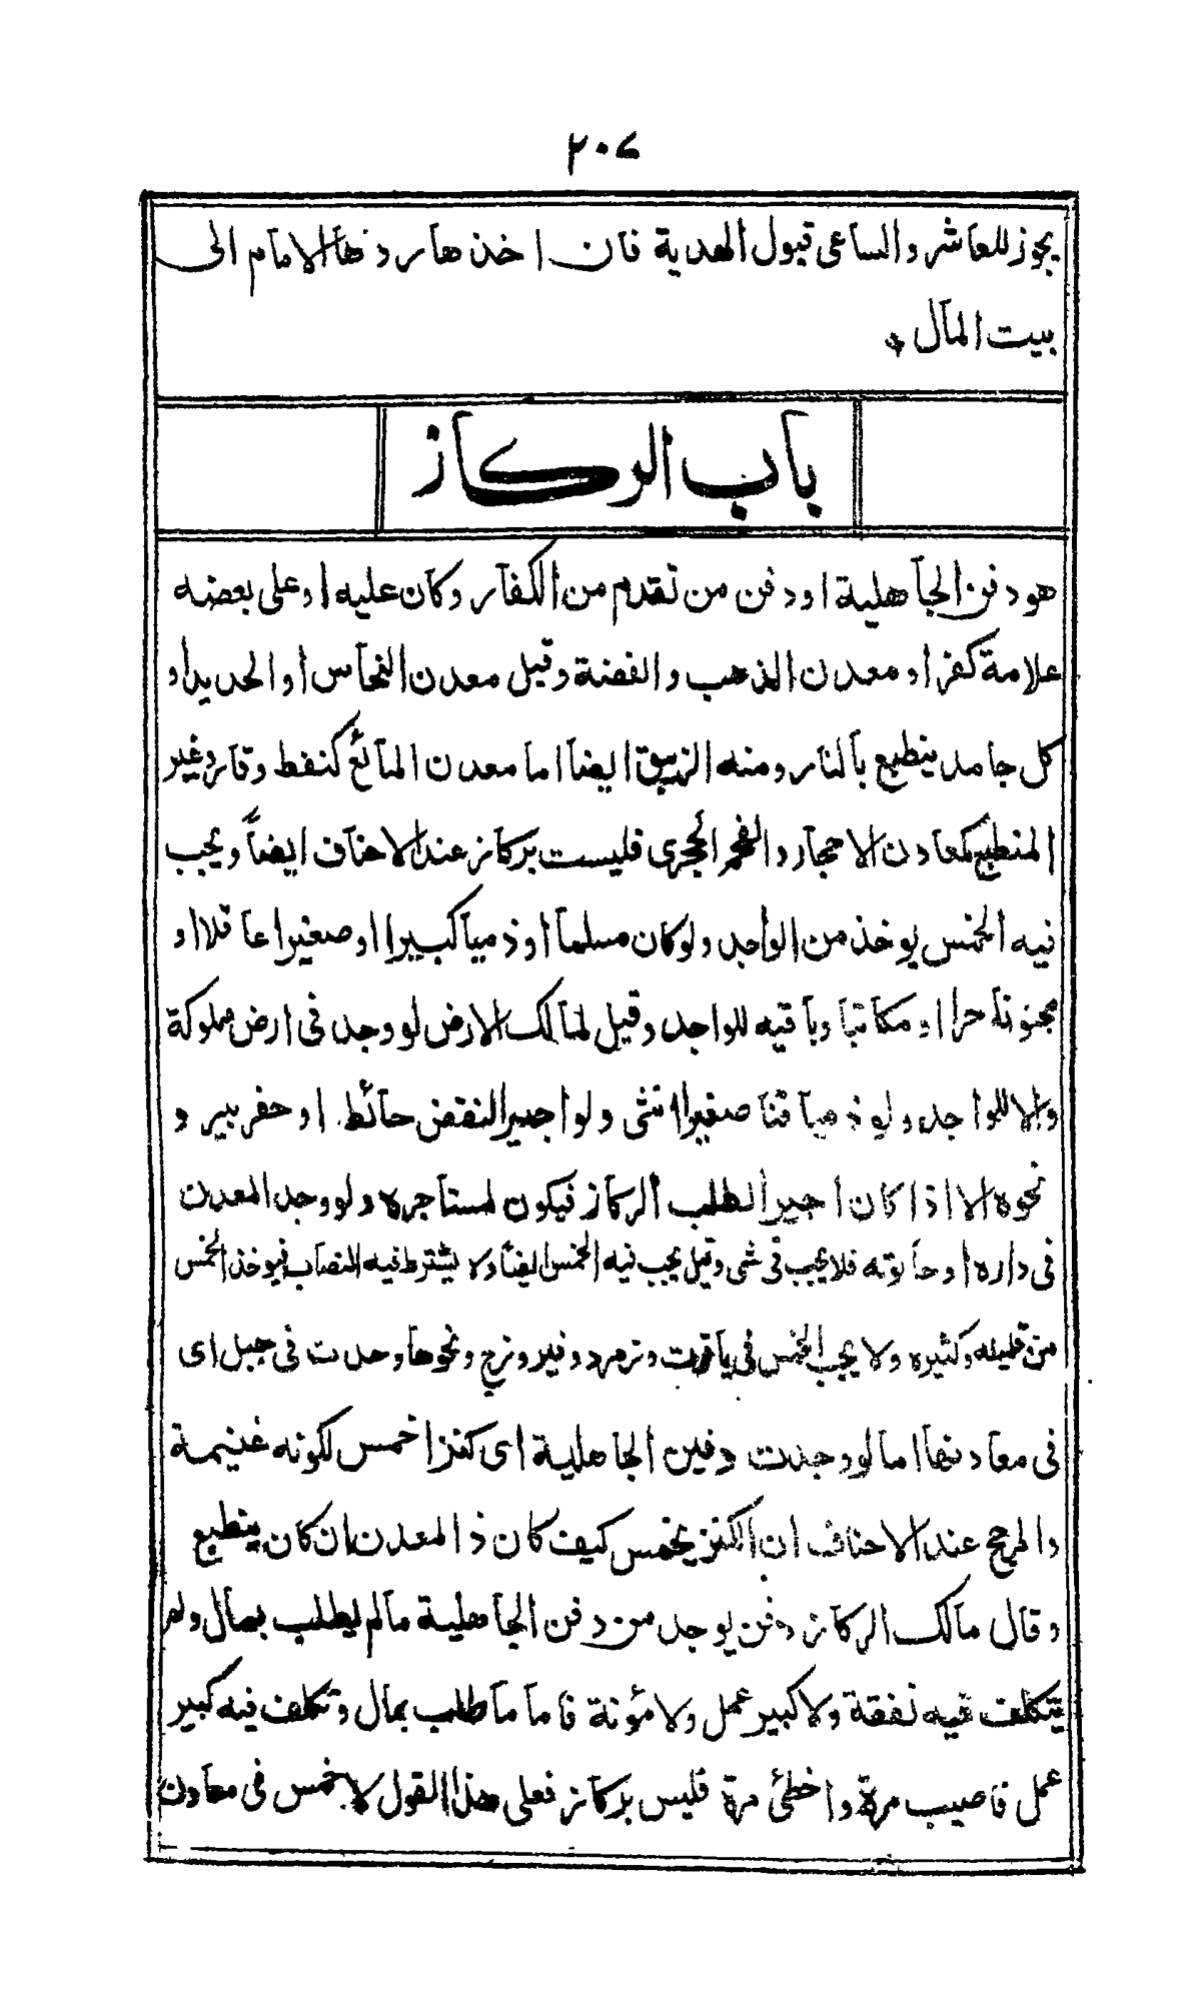 ٢٠٧
يجوز للعاشر والساعى قبول الهدية فان اخذها ردها الامام الى
بيت المال *
باب الركاز
هو دفن الجاهلية او دفن من تقدم من الكفار وكان عليه او على بعضه
علامة كفر او معدن الذهب والفضة وقيل معدن النحاس او الحديد او
كل جامد ينطبع بالنار ومنه الزيبق ايضا اما معدن المائع كنفط وقار وغير
المنطبع كمعادن الاحجار والفحم الحجرى فليست بركاز عند الاحناف ايضاً ويجب
فيه الخمس يوخذ من الواجد ولو كان مسلما او ذميا كبيرا او صغيرا عاقلا او
مجنونا حرا او مكاتبا وباقيه للواجد وقيل لمالك الارض لو وجد فى ارض مملوكة
والا للواجد ولو ذميا قنا صغيرا انثى ولو اجيرا لنقض حائط او حفر بير و
نحوه الا اذا كان اجيرا لطلب الركاز فيكون لمستاجره ولو وجد المعدن
فى داره او حانوته فلا يجب فى شى وقيل يجب فيه الخمس ايضا ولا يشترط فيه النصاب فيوخذ الخمس
من قليله وكثيره ولا يجب الخمس فى ياقوت وزمرد وفيروزج ونحوها وجدت فى جبل اى
فى معادنها اما لو وجدت دفين الجاهلية اى كنزا خمس لكونه غنيمة
والمرجح عند الاحناف ان الكنز يخمس كيف كان ذا المعدن ان كان ينطبع
وقال مالك الركاز دفن يوجد من دفن الجاهلية مالم يطلب بمال ولم
يتكلف فيه نفقة ولا كبير عمل ولا مؤنة فاما ما طلب بمال وتكلف فيه كبير
عمل فاصيب مرة واخطئ مرة فليس بركاز فعلى هذا القول لا خمس فى معادن